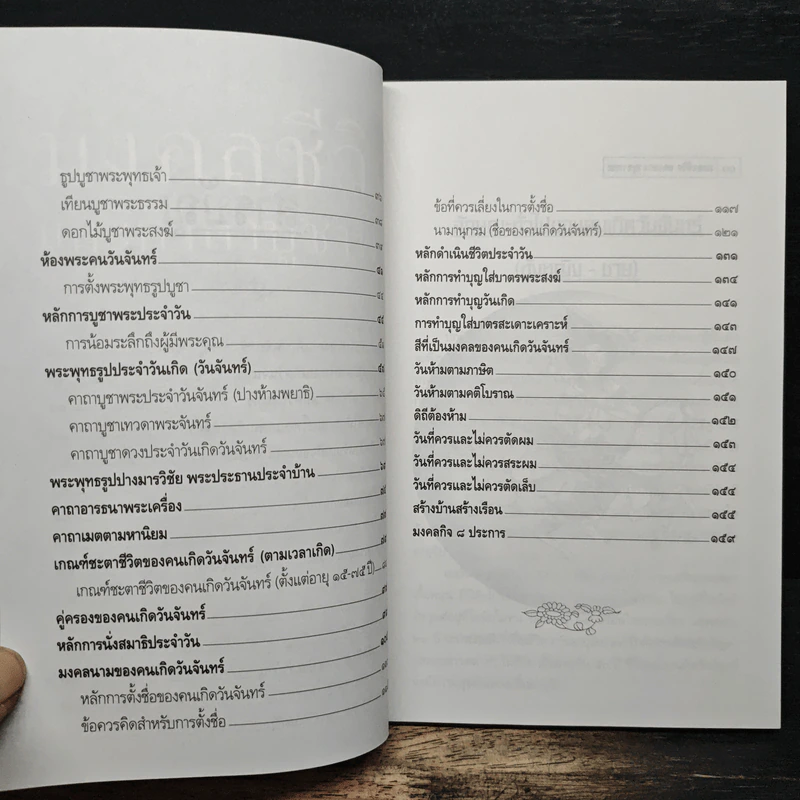 ธูปบูชาพระพุทธเจ้า
เทียนบูชาพระธรรม
ดอกไม้บูชาพระสงฆ์
ห้องพระคนวันจันทร์
การตั้งพระพุทธรูปบูชา
หลักการบูชาพระประจำวัน
การน้อมระลึกถึงผู้มีพระคุณ
พระพุทธรูปประจำวันเกิด (วันจันทร์)
คาถาบูชาพระประจำวันจันทร์ (ปางห้ามพยาธิ)
คาถาบูชาเทวดาพระจันทร์
คาถาบูชาดวงประจำวันเกิดวันจันทร์
พระพุทธรูปปางมารวิชัย พระประธานประจำบ้าน
คาถาอารธนาพระเครื่อง
คาถาเมตตามหานิยม
เกณฑ์ชะตาชีวิตของคนเกิดวันจันทร์ (ตามเวลาเกิด)
เกณฑ์ชะตาชีวิตของคนเกิดวันจันทร์ (ตั้งแต่อายุ ๑๕-๗๕ ปี)
คู่ครองของคนเกิดวันจันทร์
หลักการนั่งสมาธิประจำวัน
มงคลนามของคนเกิดวันจันทร์
หลักการตั้งชื่อของคนเกิดวันจันทร์
ข้อควรคิดสำหรับการตั้งชื่อ
ข้อที่ควรเลี่ยงในการตั้งชื่อ ๑๑๗
นามานุกรม (ชื่อของคนเกิดวันจันทร์) ๑๒๑
หลักดำเนินชีวิตประจำวัน ๑๓๑
หลักการทำบุญใส่บาตรพระสงฆ์ ๑๓๔
หลักการทำบุญวันเกิด ๑๔๑
การทำบุญใส่บาตรสะเดาะเคราะห์ ๑๔๓
สีที่เป็นมงคลของคนเกิดวันจันทร์ ๑๔๗
วันห้ามตามภาษิต ๑๕๐
วันห้ามตามคติโบราณ ๑๕๑
ดิถีต้องห้าม ๑๕๒
วันที่ควรและไม่ควรตัดผม ๑๕๓
วันที่ควรและไม่ควรสระผม ๑๕๔
วันที่ควรและไม่ควรตัดเล็บ ๑๕๔
สร้างบ้านสร้างเรือน ๑๕๕
มงคลกิจ ๘ ประการ ๑๕๙